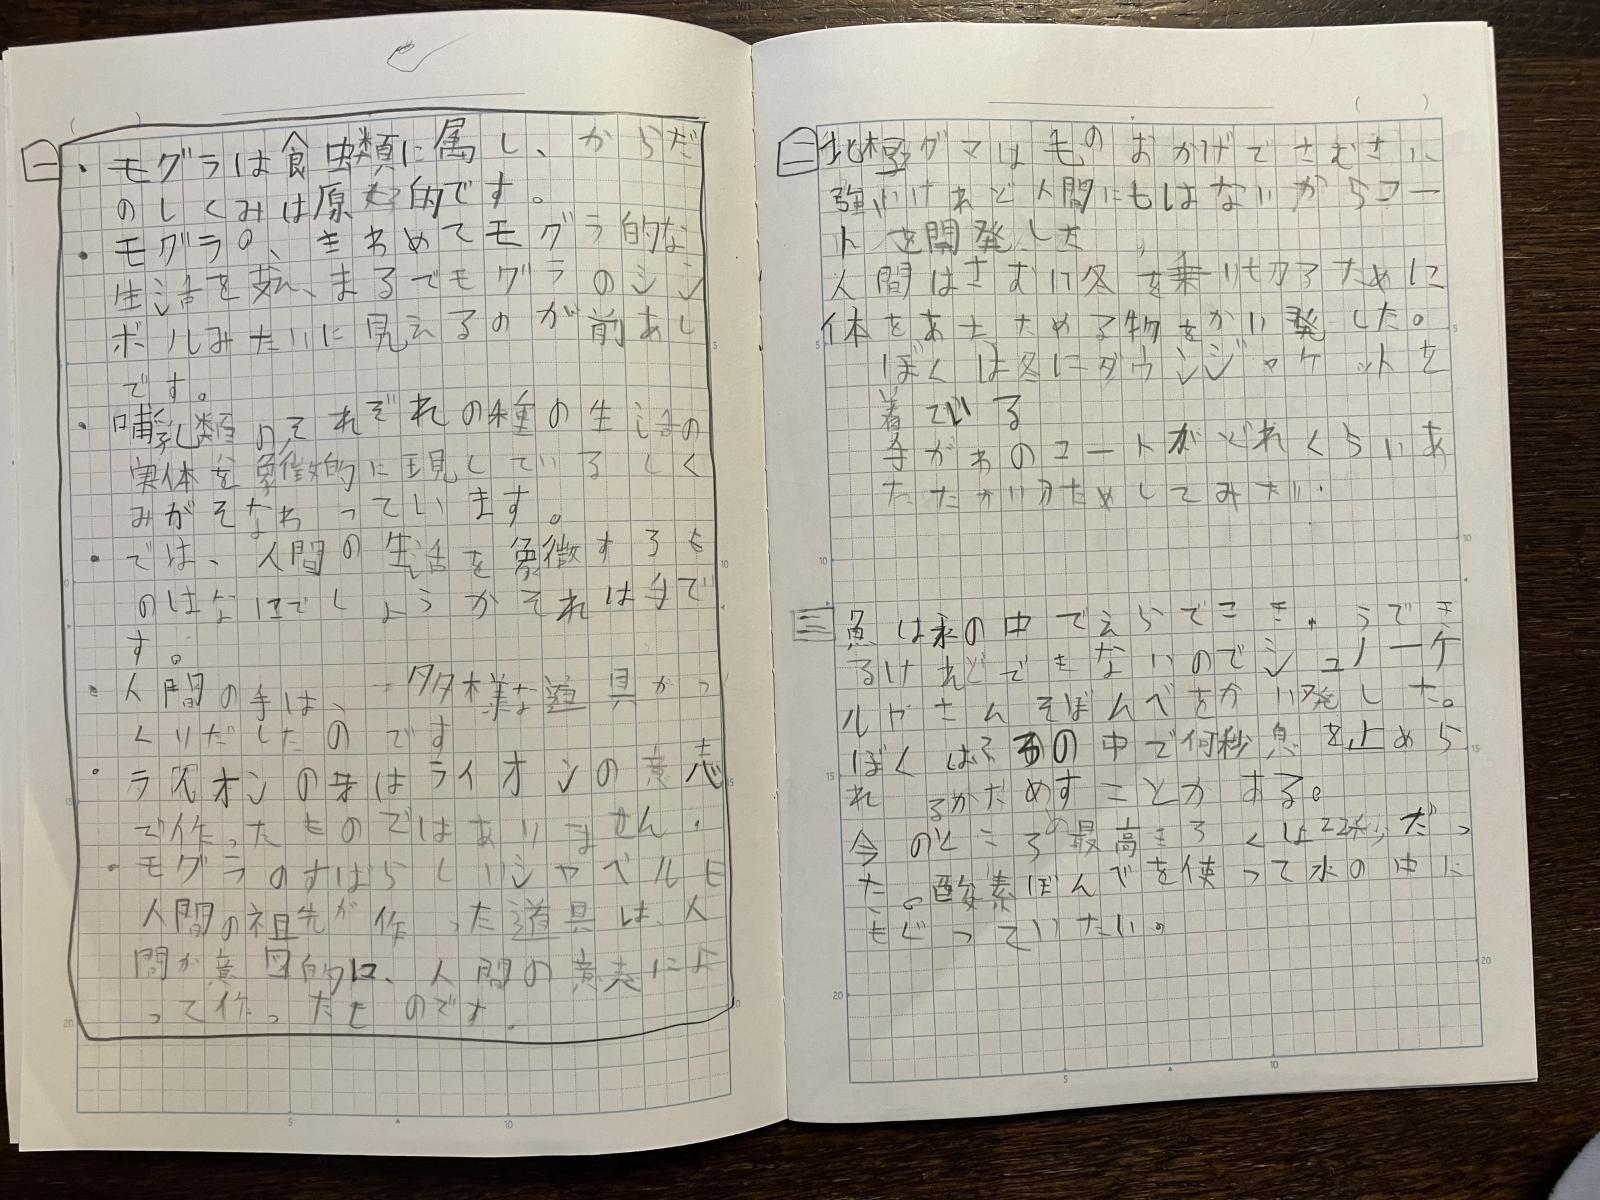 一
・モグラは食虫類に属し、からだ
のしくみは原始的です。
・モグラの、きわめてモグラ的な
生活を支え、まるでモグラのシン
ボルみたいに見えるのが前あし
です。
・哺乳類の、それぞれの種の生活の
実体を象徴的に現しているしく
みがそなわっています。
・では、人間の生活を象徴するも
のはなにでしょうかそれは手で
す。
・人間の手は、一タタ様な道具がつ
くりだしたのです
・ライオンの牙はライオンの意志
で作ったものではありません.
・モグラのすばらしいシャベルと
人間の祖先が作った道具は、人
間が意図的に、人間の意志によ
って作ったものです.
二
北極グマは毛のおかげでさむさに
強いけれど人間にもはないからコー
トを開発した
人間はさむい冬を乗りもカろために
体をあたためる物をかい発した。
ぼくは冬にダウンジャケットを
着ている
寺がわのコートがどれくらいあ
たたかいかためしてみたい.
三
魚は水の中でえらでこき.うでき
るけれどできないのでシュノーケ
ルやさんそぼんべをかい発した。
ぼくはふろの中で何秒息を止めら
れるかだめすことがある。
今のところの最高きろくは22秒だっ
た。酸素ぼんでを使って水の中に
もぐっていたい。